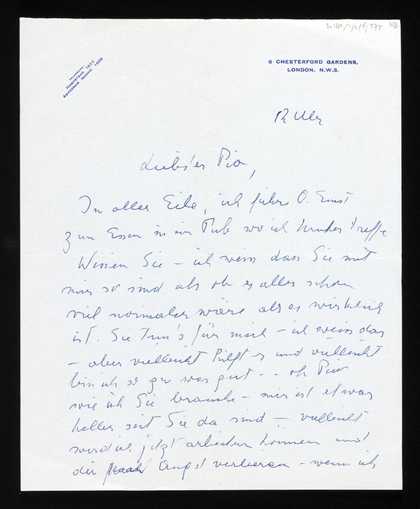 6 CHESTERFORD GARDENS,
LONDON. N.W.3.
12 Uhr
Liebster Pio,
In aller Eile, ich führe O. Ernst
zum Essen in ein Pub wo ich Kinder treffe
Wissen Sie – ich weiss dass Sie mit
mir so sind als ob es alles schon
viel normaler wäre als es wirklich
ist. Sie tun's für mich – ich weiss das
– aber vielleicht hilft es und vielleicht
bin ich so gar was gut... oh Pio
wie ich Sie brauche – mir ist etwas
heller seit Sie da sind – vielleicht
werd ich jetzt arbeiten können und
die Angst verlieren – wenn ich